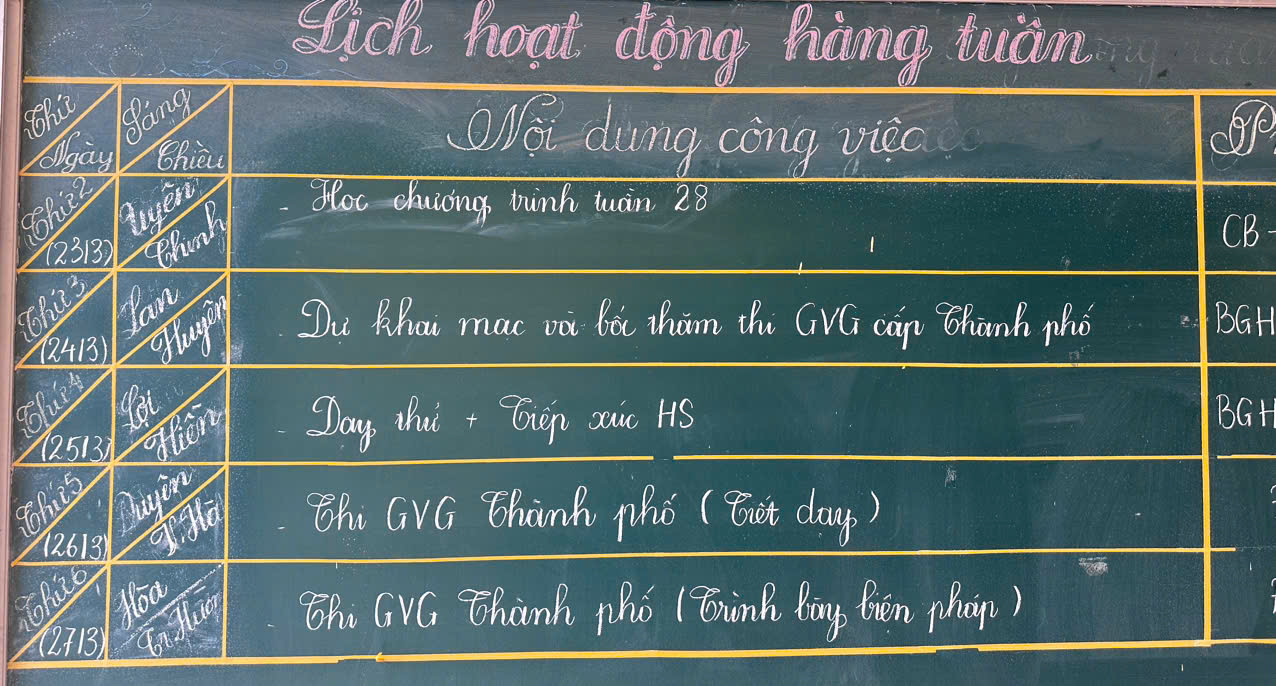 Lịch hoạt động hàng tuần
Thứ Ngày Sáng Chiều Nội dung công việc
Thứ 2 (23/3) Uyên Chinh - Học chương trình tuần 28 CB -
Thứ 3 (24/3) Lan Huyên - Dự khai mạc và bốc thăm thi GVG cấp Thành phố BGH
Thứ 4 (25/3) Lợi Hiền - Dạy thử + Tiếp xúc HS BGH
Thứ 5 (26/3) Duyên - Thi GVG Thành phố (Tiết dạy)
Thứ 6 (27/3) Hòa Thi GVG Thành phố (Trình bày biện pháp)